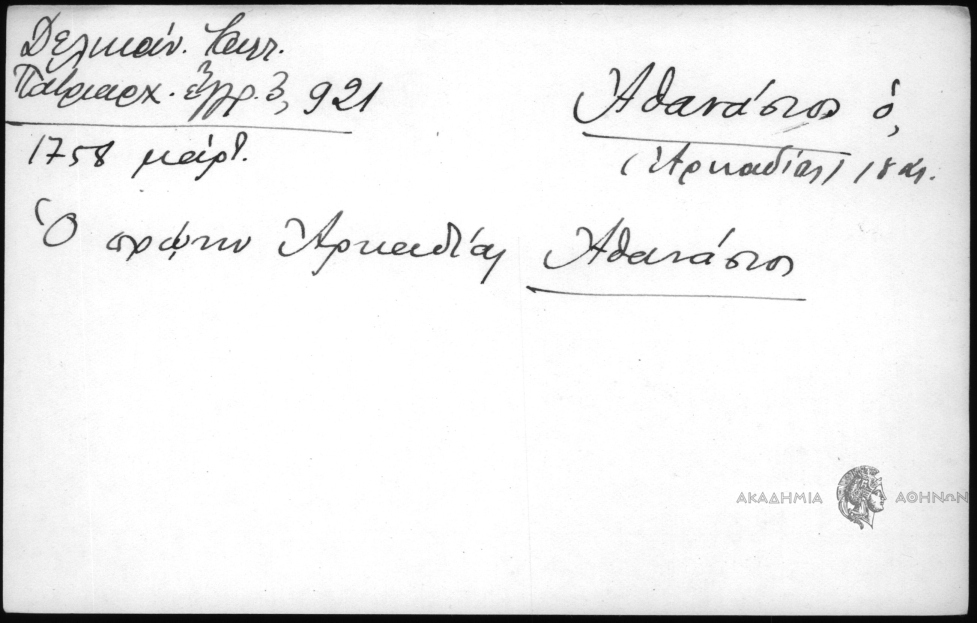 Δελικάν. Καλλ.
Πατριαρχ. ἔγγρ. 3, 921
1758 μάρτ.
Ἀθανάσιος ὁ,
(Ἀρκαδίας) 18 αἰ.
Ὁ πρώην Ἀρκαδίας Ἀθανάσιος
ΑΚΑΔΗΜΙΑ ΑΘΗΝΩΝ